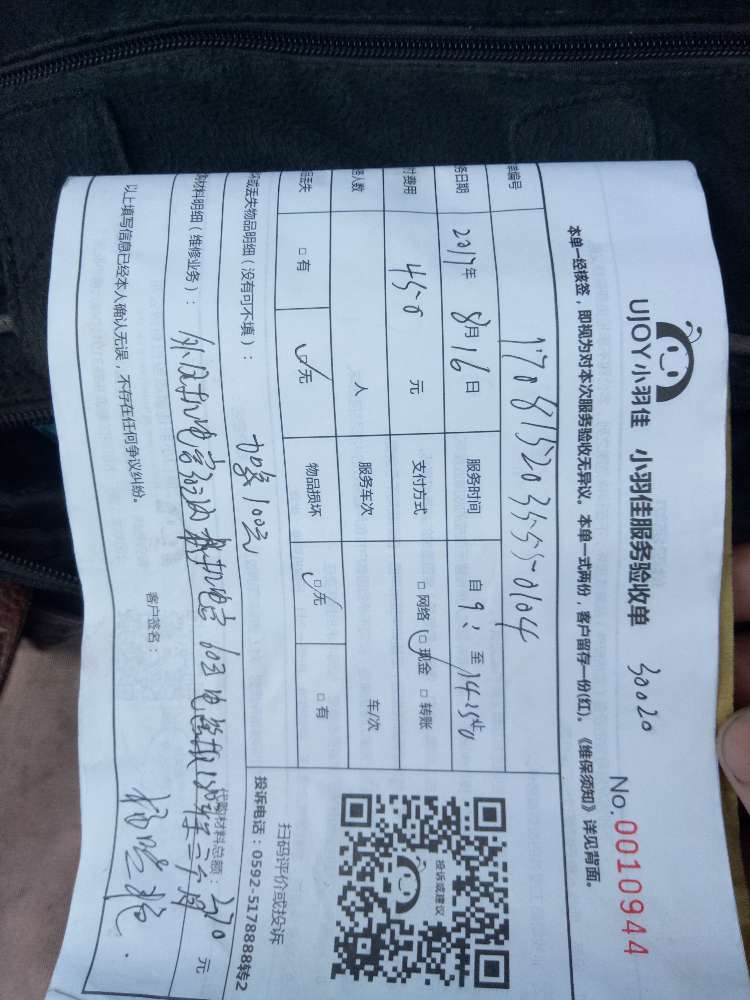 UJOY小羽佳 小羽佳服务验收单 30020
No.0010944
本单一经核签，即视为对本次服务验收无异议。本单一式两份，客户留存一份(红)。《维保须知》详见背面。
单编号 17081520355-0104
务日期 2017年 8月16日 服务时间 自 9: 至 14
付费用 450 元 支付方式 □网络 ☑现金 □转账
务人数 人 服务车次 车/次
品丢失 □有 ☑无 物品损坏 ☑无 □有
投诉或建议
扫码评价或投诉
投诉电话：0592-5178888转2
坏或丢失物品明细（没有可不填）：
加氟100元
购材料明细（维修业务）： 外风机电容 代购材料总额： 元
以上填写信息已经本人确认无误，不存在任何争议纠纷。 客户签名：